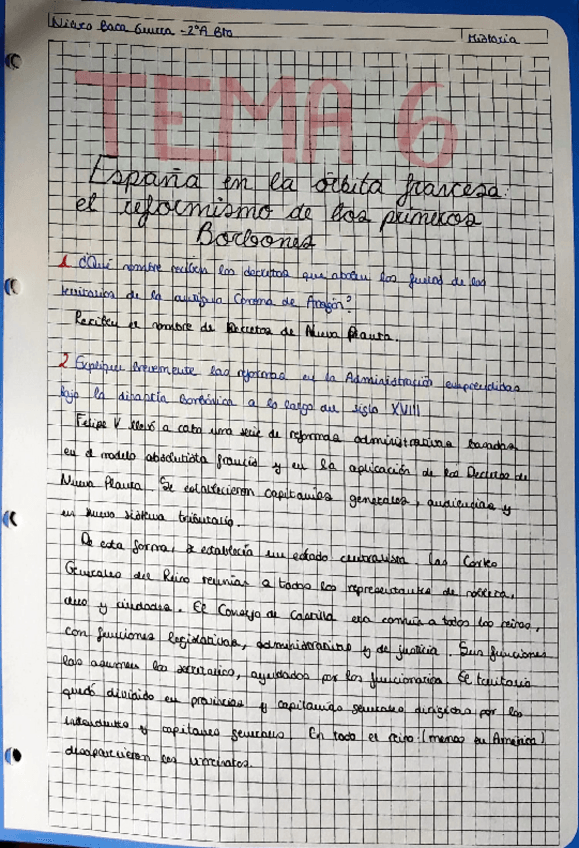 Nieves Baca Guerra - 2ºA Bto
Historia
TEMA 6
España en la órbita francesa:
el reformismo de los primeros
Borbones
1 ¿Qué nombre reciben los decretos que abolen los fueros de los
territorios de la antigua Corona de Aragón?
Reciben el nombre de Decretos de Nueva Planta.
2 Explique brevemente las reformas en la Administración emprendidas
bajo la dinastía borbónica a lo largo del siglo XVIII
Felipe V llevó a cabo una serie de reformas administrativas basadas
en el modelo absolutista francés y en la aplicación de los Decretos de
Nueva Planta. Se establecieron capitanías generales, audiencias y
un nuevo sistema tributario.
De esta forma, se establecía un estado centralista. Las Cortes
Generales del Reino reunían a todos los representantes de nobleza,
clero y ciudades. El Consejo de Castilla era común a todos los reinos,
con funciones legislativas, administrativas y de justicia. Sus funciones
las asumen los secretarios, ayudados por los funcionarios. El territorio
quedó dividido en provincias y capitanías generales dirigidas por los
intendentes y capitanes generales. En todo el reino (menos en América)
desaparecieron los virreinatos.